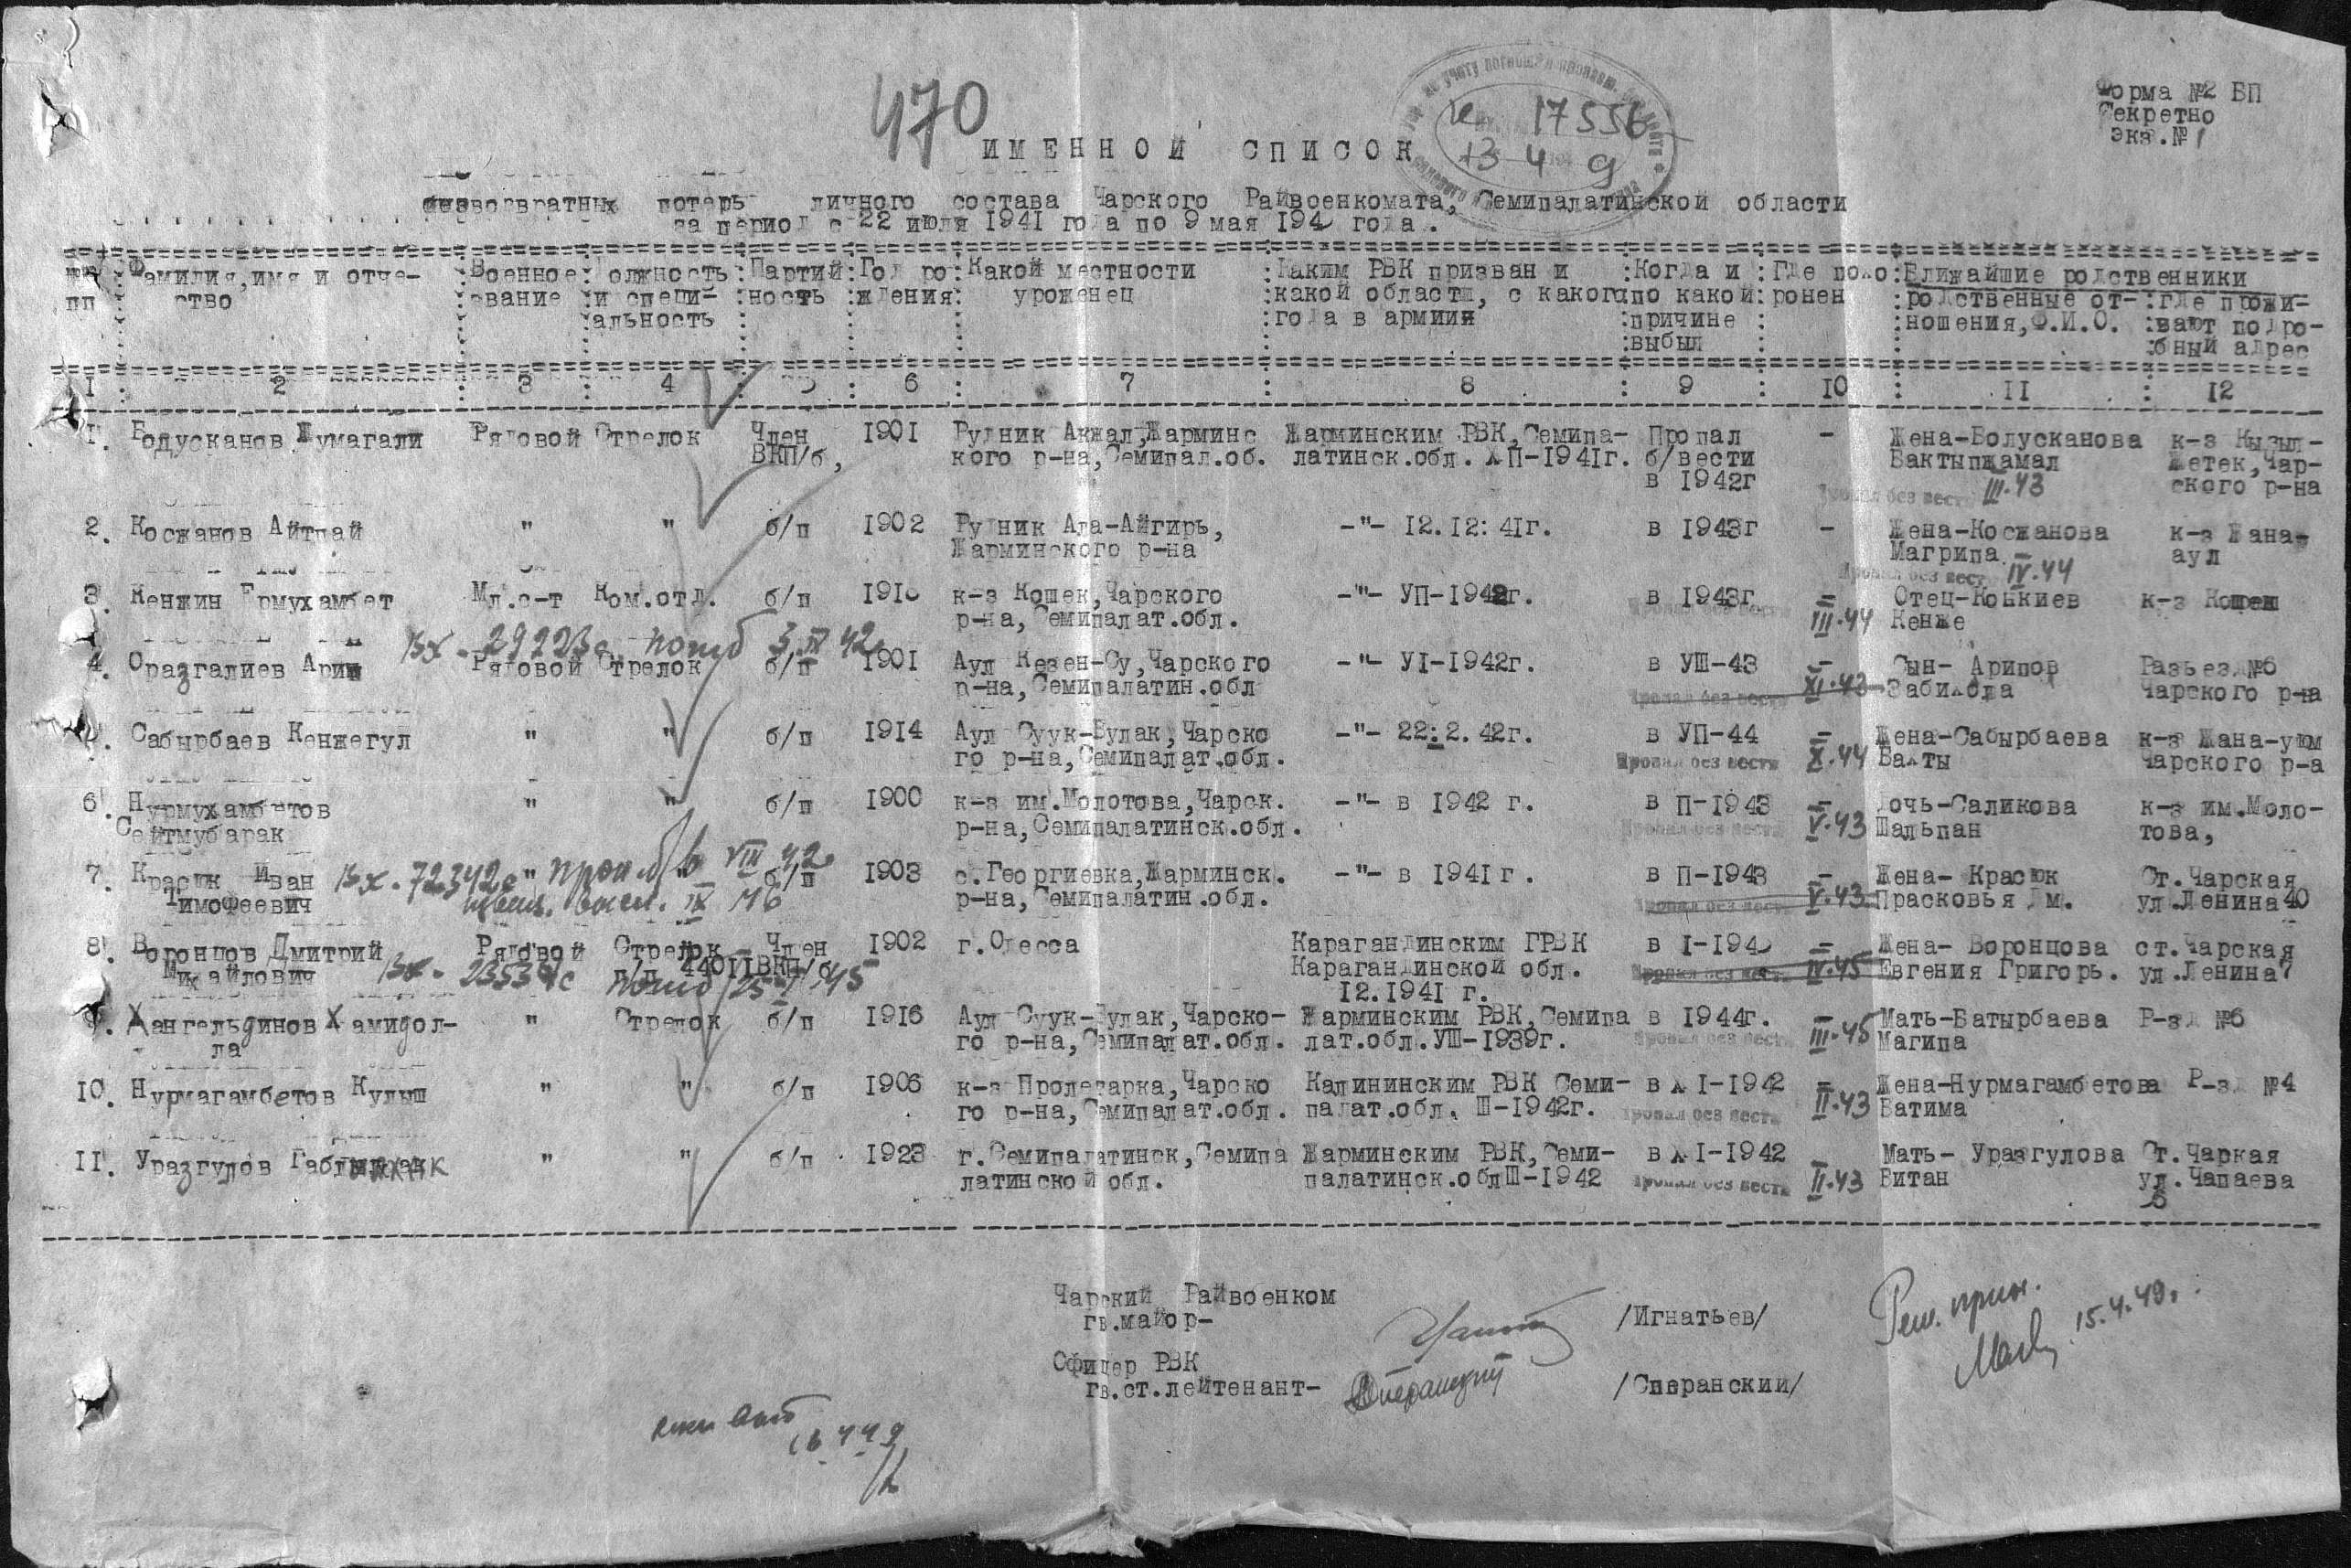 470
17556
13 4 9
Форма №2 БП
Секретно
экз.№ 1
ИМЕННОЙ СПИСОК
безвозвратных потерь личного состава Чарского Райвоенкомата, Семипалатинской области
за период с 22 июля 1941 года по 9 мая 194 года.
№№ пп : Фамилия,имя и отчество : Военное звание : Должность и специальность : Партийность : Год рождения : Какой местности уроженец : Каким РВК призван и какой области, с какого года в армиия : Когда и по какой причине выбыл : Где похоронен : Ближайшие родственники
родственные отношения,Ф.И.О. : где проживают подробный адрес
1 : 2 : 3 : 4 : 5 : 6 : 7 : 8 : 9 : 10 : 11 : 12
1. Бодусканов Жумагали Рядовой Стрелок Член 1901 Рудник Акжал,Жарминс Жарминским РВК,Семипа- Пропал - Жена-Болусканова к-з Кызыл-
ВКП/б, кого р-на,Семипал.об. латинск.обл. ХП-1941г. б/вести Бактыпжамал Жетек,Чар-
в 1942г III.43 ского р-на
Пропал без вести
2. Косжанов Айтпай " " б/п 1902 Рудник Ала-Айгирь, -"- 12.12:41г. в 1943г - Жена-Косжанова к-з Жана-
Жарминского р-на Магрипа аул
Пропал без вест IV.44
3. Кенжин Ермухамбет Мл.с-т Ком.отд. б/п к-з Кошек,Чарского -"- УП-1942г. в 1943г - Отец-Конкиев к-з Кошек
р-на, Семипалат.обл. III.44 Кенже
Вх. 29223с погиб 3.IV 42
4. Оразгалиев Арип Рядовой Стрелок б/п 1901 Аул Кезен-Су,Чарского -"- УІ-1942г. в УШ-43 - Сын- Арипов Разьезд№6
р-на,Семипалатин.обл Пропал без вести XI.43 Забихола Чарского р-на
5. Сабырбаев Кенжегул " " б/п 1914 Аул Суук-Булак,Чарско -"- 22:2.42г. в УП-44 - Жена-Сабырбаева к-з Жана-уюм
го р-на,Семипалат.обл. Пропал без вести X.44 Бахты Чарского р-а
6. Нурмухамбетов " " б/п 1900 к-з им.Молотова,Чарск. -"- в 1942 г. в П-1943 - Дочь-Саликова к-з им.Моло-
Сейтмубарак р-на,Семипалатинск.обл. Пропал без вести V.43 Шальпан това,
7. Красюк Иван " " б/п 1903 с.Георгиевка,Жарминск. -"- в 1941г. в П-1943 - Жена- Красюк Ст.Чарская
Вх. 72342с проп. б/в VIII 42
Тимофеевич IX 46 р-на,Семипалатин.обл. Пропал без вести V.43 Прасковья Дм. ул.Ленина 40
8. Воронцов Дмитрий Рядовой Стрелок Член 1902 г.Одесса Карагандинским ГРВК в І-194 - Жена- Воронцова ст.Чарская
Михайлович п/п 44011 ВКП/б Карагандинской обл. Пропал без вест. IV.45 Евгения Григорь. ул.Ленина7
Вх. 23534с погиб 25 45 12.1941 г.
9. Хангельдинов Хамидол- " Стрелок б/п 1916 Аул Суук-Булак,Чарско- Жарминским РВК,Семипа в 1944г. - Мать-Батырбаева Р-зд №6
ла го р-на,Семипалат.обл. лат.обл.УШ-1939г. Пропал без вест. III.45 Магипа
10. Нурмагамбетов Кулыш " " б/п 1906 к-з Пролетарка,Чарско Калининским РВК Семи- в ХІ-1942 - Жена-Нурмагамбетова Р-зд №4
го р-на,Семипалат.обл. палат.обл. Ш-1942г. Пропал без весть II.43 Батима
11. Уразгулов " " б/п 1923 г.Семипалатинск,Семипа Жарминским РВК,Семи- в ХІ-1942 - Мать- Уразгулова Ст.Чаркая
латинской обл. палатинск.облШ-1942 Пропал без вести II.43 Витан ул.Чапаева
6
Чарский Райвоенком
гв.майор- /Игнатьев/
Офицер РВК
гв.ст.лейтенант- Сперанский /Сперанский/
15.4.49.